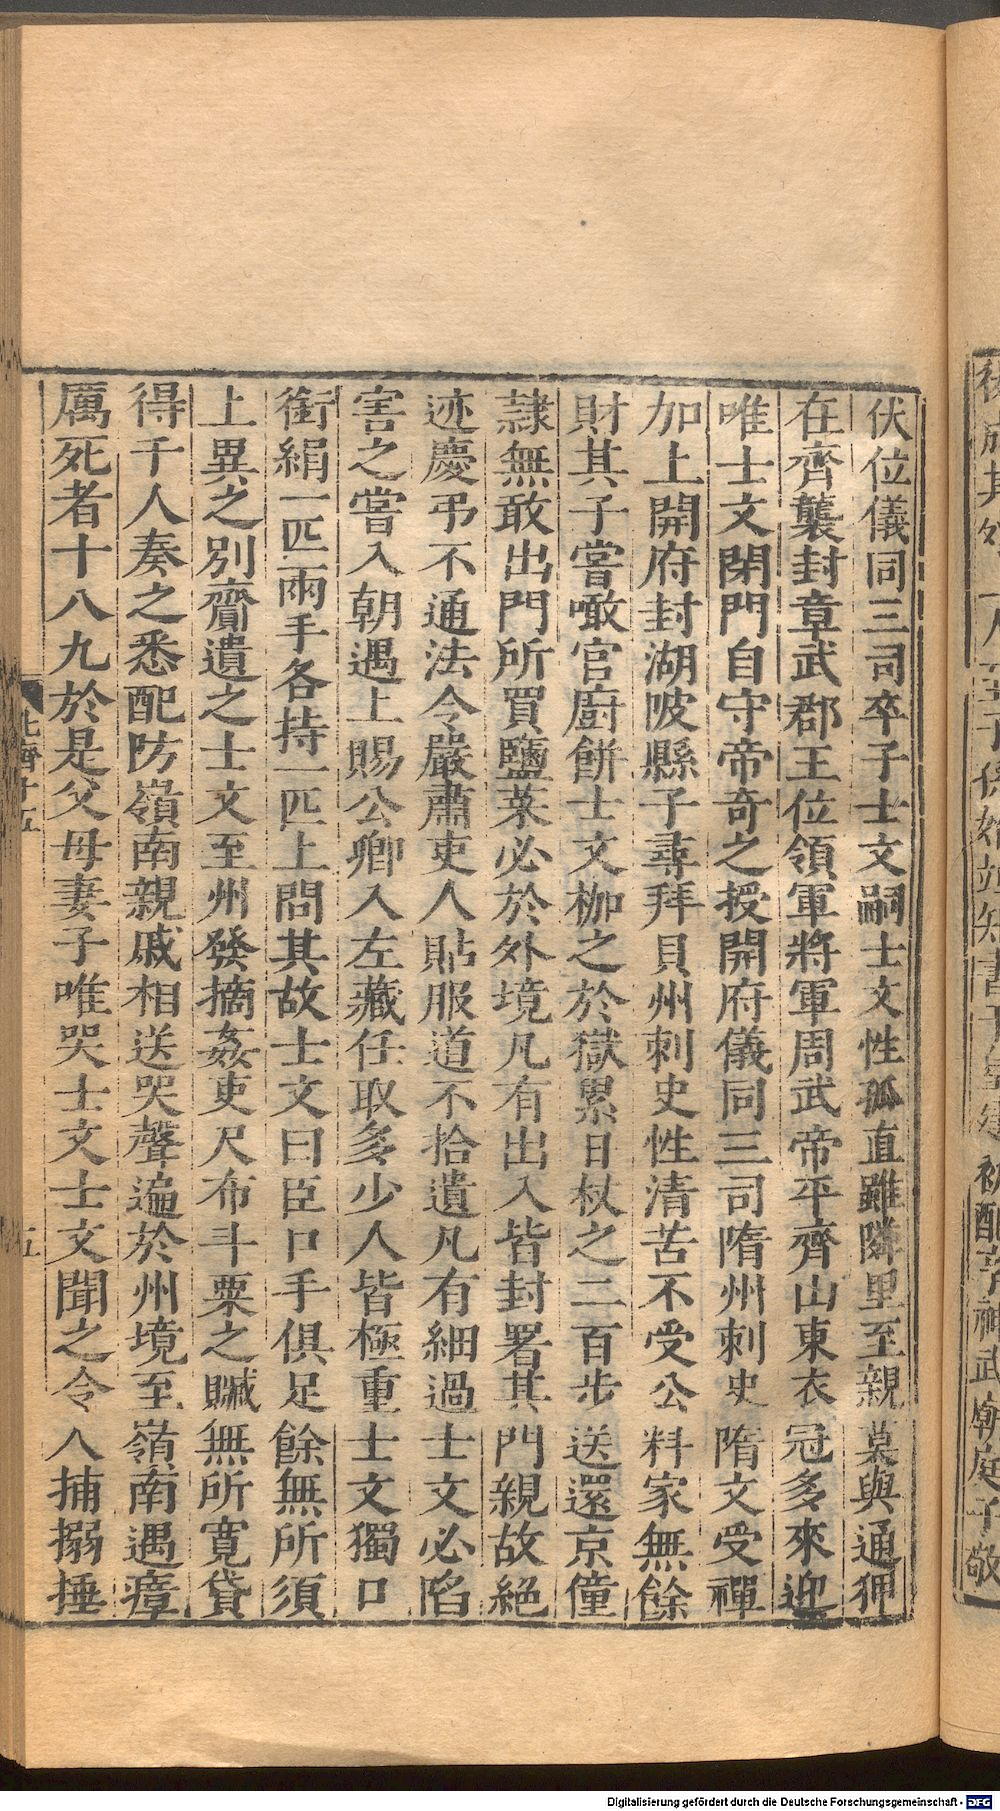 伏位儀同三司卒子士文嗣士文性孤直雖隣里至親莫與通狎
在齊襲封章武郡王位領軍將軍周武帝平齊山東衣冠多來迎
唯士文閉門自守帝奇之授開府儀同三司隋州刺史隋文受禪
加上開府封湖陂縣子尋拜貝州刺史性清苦不受公料家無餘
財其子嘗噉官廚餅士文枷之於獄累日杖之二百步送還京僮
隷無敢出門所買鹽菜必於外境凡有出入皆封署其門親故絕
迹慶弔不通法令嚴肅吏人貼服道不拾遺凡有細過士文必陷
害之嘗入朝遇上賜公卿入左藏任取多少人皆極重士文獨口
銜絹一匹兩手各持一匹上問其故士文曰臣口手俱足餘無所須
上異之別齎遺之士文至州發摘姦吏尺布斗粟之贓無所寬貸
得千人奏之悉配防嶺南親戚相送哭聲遍於州境至嶺南遇瘴
厲死者十八九於是父母妻子唯哭士文士文聞之令人捕搦捶
北齊十五
五
Digitalisierung gefördert durch die Deutsche Forschungsgemeinschaft - DFG